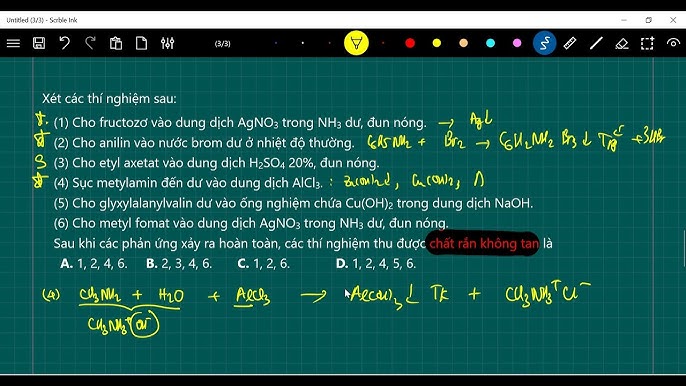 Untitled (3/3) - Scrble Ink
(3/3)
Xét các thí nghiệm sau:
(1) Cho fructozơ vào dung dịch AgNO3 trong NH3 dư, đun nóng. → Ag↓
(2) Cho anilin vào nước brom dư ở nhiệt độ thường. C6H5NH2 + Br2 → C6H2NH2Br3↓ + 3HBr
S (3) Cho etyl axetat vào dung dịch H2SO4 20%, đun nóng.
(4) Sục metylamin đến dư vào dung dịch AlCl3. : Zn(OH)2↓, Cu(OH)2,
(5) Cho glyxylalanylvalin dư vào ống nghiệm chứa Cu(OH)2 trong dung dịch NaOH.
(6) Cho metyl fomat vào dung dịch AgNO3 trong NH3 dư, đun nóng.
Sau khi các phản ứng xảy ra hoàn toàn, các thí nghiệm thu được chất rắn không tan là
A. 1, 2, 4, 6. B. 2, 3, 4, 6. C. 1, 2, 6. D. 1, 2, 4, 5, 6.
(4) CH3NH2 + H2O + AlCl3 → Al(OH)3↓ TK + CH3NH3+Cl-
CH3NH3+OH-